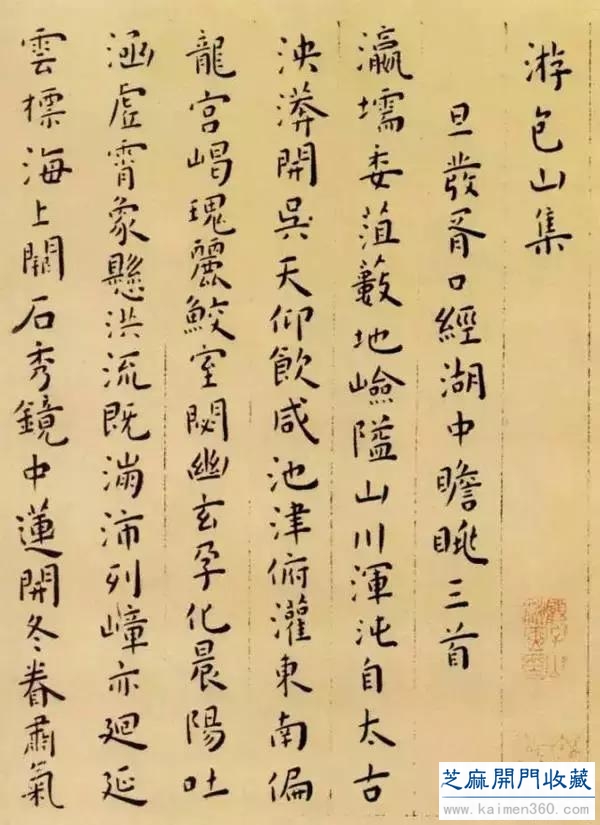 游包山集
旦發胥口經湖中瞻眺三首
瀛壖委菹藪地嶮隘山川渾沌自太古
泱漭開吳天仰飲咸池津俯灌東南偏
龍宮嵑瑰麗鮫室閟幽玄孕化晨陽吐
涵虛霄象懸洪流既滿沛列嶂亦迴延
雲標海上闕石秀鏡中蓮開冬眷肅氣
芝麻開門收藏
www.kaimen360.com